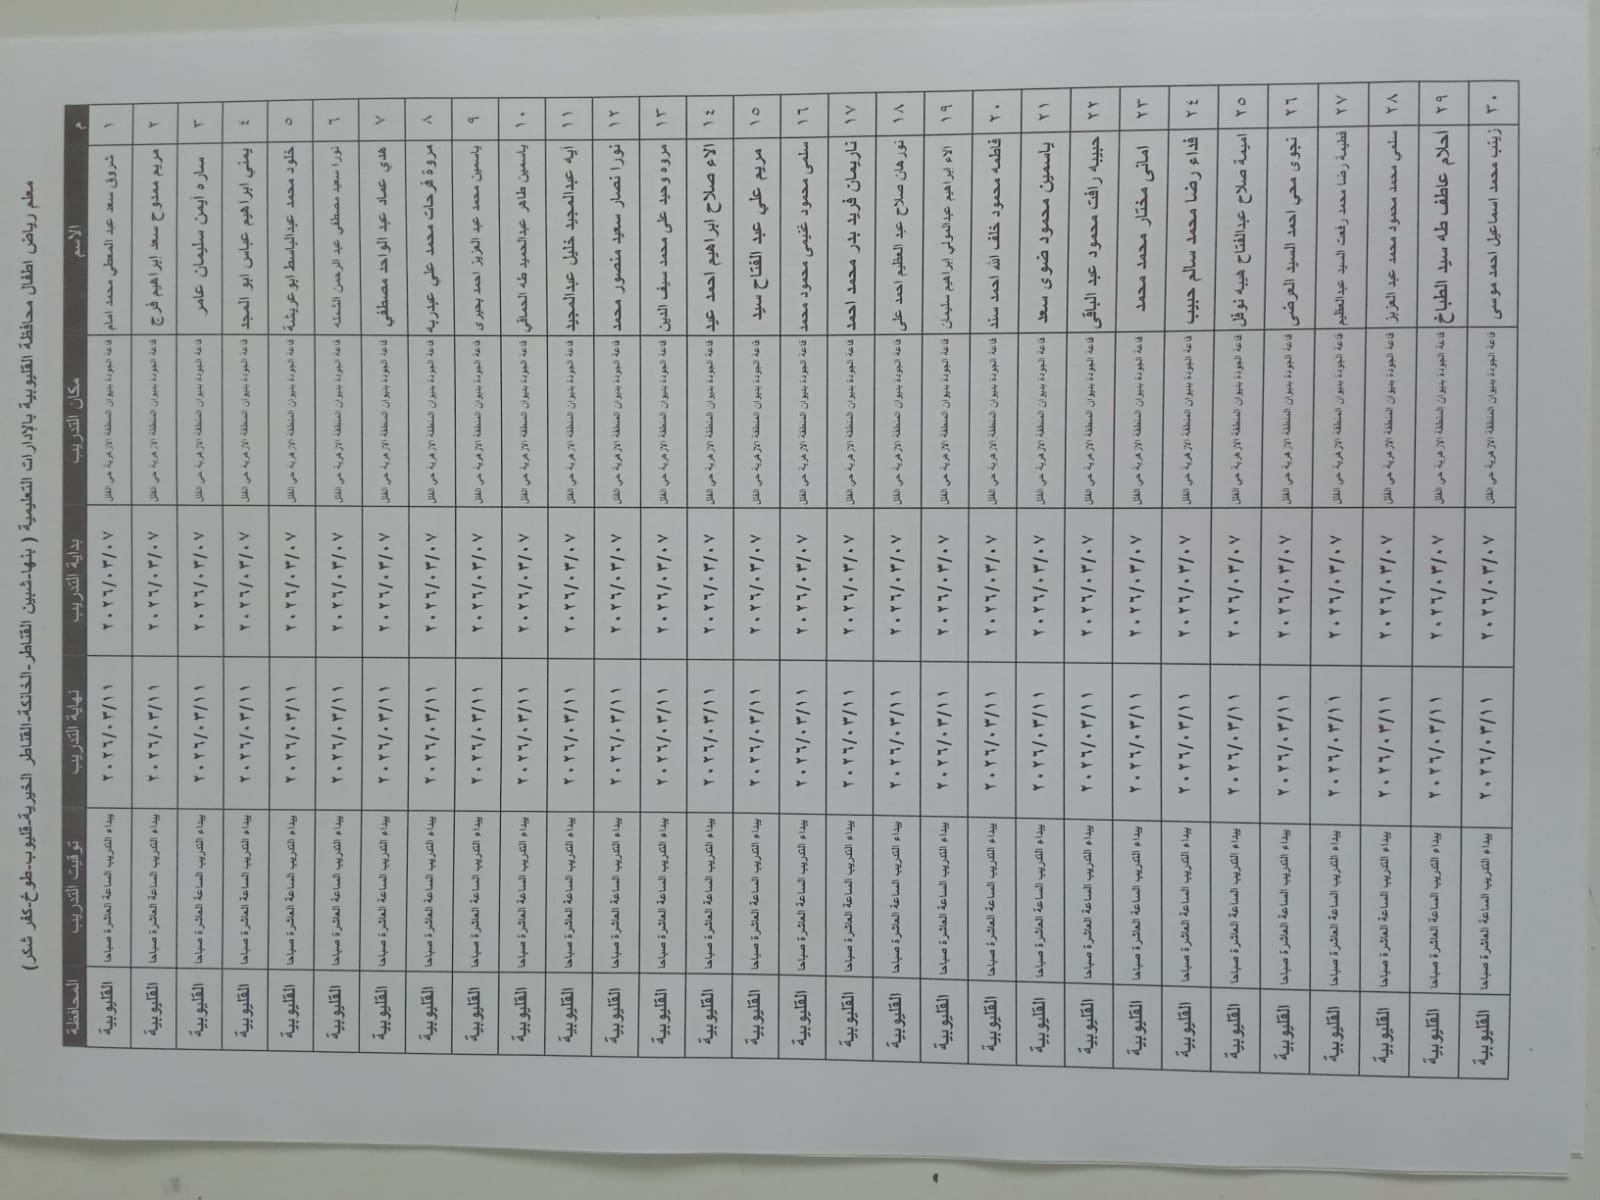 معلم رياض اطفال محافظة القليوبية بالإدارات التعليمية ( بنها-شبين القناطر-الخانكة-القناطر الخيرية-قليوب-طوخ-كفر شكر)
م الاسم مكان التدريب بداية التدريب نهاية التدريب توقيت التدريب المحافظة
١ شروق سعد عبد المعطي محمد امام قاعة الجودة بديوان المنطقة الازهرية حي الفلل ٢٠٢٦/٠٣/٠٧ ٢٠٢٦/٠٣/١١ يبداء التدريب الساعة العاشرة صباحا القليوبية
٢ مريم ممدوح سعد ابراهيم فرج قاعة الجودة بديوان المنطقة الازهرية حي الفلل ٢٠٢٦/٠٣/٠٧ ٢٠٢٦/٠٣/١١ يبداء التدريب الساعة العاشرة صباحا القليوبية
٣ ساره أيمن سليمان عامر قاعة الجودة بديوان المنطقة الازهرية حي الفلل ٢٠٢٦/٠٣/٠٧ ٢٠٢٦/٠٣/١١ يبداء التدريب الساعة العاشرة صباحا القليوبية
٤ يمني ابراهيم عباس ابو المجد قاعة الجودة بديوان المنطقة الازهرية حي الفلل ٢٠٢٦/٠٣/٠٧ ٢٠٢٦/٠٣/١١ يبداء التدريب الساعة العاشرة صباحا القليوبية
٥ خلود محمد عبدالباسط ابوعريشة قاعة الجودة بديوان المنطقة الازهرية حي الفلل ٢٠٢٦/٠٣/٠٧ ٢٠٢٦/٠٣/١١ يبداء التدريب الساعة العاشرة صباحا القليوبية
٦ نورا سعيد مصطفي عبد الرحمن الشمله قاعة الجودة بديوان المنطقة الازهرية حي الفلل ٢٠٢٦/٠٣/٠٧ ٢٠٢٦/٠٣/١١ يبداء التدريب الساعة العاشرة صباحا القليوبية
٧ هدي عماد عبد الواحد مصطفي قاعة الجودة بديوان المنطقة الازهرية حي الفلل ٢٠٢٦/٠٣/٠٧ ٢٠٢٦/٠٣/١١ يبداء التدريب الساعة العاشرة صباحا القليوبية
٨ مروة فرحات محمد علي عبدربه قاعة الجودة بديوان المنطقة الازهرية حي الفلل ٢٠٢٦/٠٣/٠٧ ٢٠٢٦/٠٣/١١ يبداء التدريب الساعة العاشرة صباحا القليوبية
٩ ياسمين محمد عبد العزيز احمد بحيرى قاعة الجودة بديوان المنطقة الازهرية حي الفلل ٢٠٢٦/٠٣/٠٧ ٢٠٢٦/٠٣/١١ يبداء التدريب الساعة العاشرة صباحا القليوبية
١٠ ياسمين طاهر عبدالحميد طه الحماقي قاعة الجودة بديوان المنطقة الازهرية حي الفلل ٢٠٢٦/٠٣/٠٧ ٢٠٢٦/٠٣/١١ يبداء التدريب الساعة العاشرة صباحا القليوبية
١١ آيه عبدالمجيد خليل عبدالمجيد قاعة الجودة بديوان المنطقة الازهرية حي الفلل ٢٠٢٦/٠٣/٠٧ ٢٠٢٦/٠٣/١١ يبداء التدريب الساعة العاشرة صباحا القليوبية
١٢ نورا نصار سعيد منصور محمد قاعة الجودة بديوان المنطقة الازهرية حي الفلل ٢٠٢٦/٠٣/٠٧ ٢٠٢٦/٠٣/١١ يبداء التدريب الساعة العاشرة صباحا القليوبية
١٣ مروه وحيد على محمد سيف الدين قاعة الجودة بديوان المنطقة الازهرية حي الفلل ٢٠٢٦/٠٣/٠٧ ٢٠٢٦/٠٣/١١ يبداء التدريب الساعة العاشرة صباحا القليوبية
١٤ الاء صلاح ابراهيم احمد عيد قاعة الجودة بديوان المنطقة الازهرية حي الفلل ٢٠٢٦/٠٣/٠٧ ٢٠٢٦/٠٣/١١ يبداء التدريب الساعة العاشرة صباحا القليوبية
١٥ مريم علي عبد الفتاح سيد قاعة الجودة بديوان المنطقة الازهرية حي الفلل ٢٠٢٦/٠٣/٠٧ ٢٠٢٦/٠٣/١١ يبداء التدريب الساعة العاشرة صباحا القليوبية
١٦ سلمى محمود غنيمى محمود محمد قاعة الجودة بديوان المنطقة الازهرية حي الفلل ٢٠٢٦/٠٣/٠٧ ٢٠٢٦/٠٣/١١ يبداء التدريب الساعة العاشرة صباحا القليوبية
١٧ ناريمان فريد بدر محمد احمد قاعة الجودة بديوان المنطقة الازهرية حي الفلل ٢٠٢٦/٠٣/٠٧ ٢٠٢٦/٠٣/١١ يبداء التدريب الساعة العاشرة صباحا القليوبية
١٨ نورهان صلاح عبد العظيم احمد على قاعة الجودة بديوان المنطقة الازهرية حي الفلل ٢٠٢٦/٠٣/٠٧ ٢٠٢٦/٠٣/١١ يبداء التدريب الساعة العاشرة صباحا القليوبية
١٩ الاء ابراهيم عبدالمولي ابراهيم سليمان قاعة الجودة بديوان المنطقة الازهرية حي الفلل ٢٠٢٦/٠٣/٠٧ ٢٠٢٦/٠٣/١١ يبداء التدريب الساعة العاشرة صباحا القليوبية
٢٠ فاطمه محمود خلف الله احمد سند قاعة الجودة بديوان المنطقة الازهرية حي الفلل ٢٠٢٦/٠٣/٠٧ ٢٠٢٦/٠٣/١١ يبداء التدريب الساعة العاشرة صباحا القليوبية
٢١ ياسمين محمود ضوى سعد قاعة الجودة بديوان المنطقة الازهرية حي الفلل ٢٠٢٦/٠٣/٠٧ ٢٠٢٦/٠٣/١١ يبداء التدريب الساعة العاشرة صباحا القليوبية
٢٢ حبيبه رافت محمود عبد الباقى قاعة الجودة بديوان المنطقة الازهرية حي الفلل ٢٠٢٦/٠٣/٠٧ ٢٠٢٦/٠٣/١١ يبداء التدريب الساعة العاشرة صباحا القليوبية
٢٣ امانى مختار محمد محمد قاعة الجودة بديوان المنطقة الازهرية حي الفلل ٢٠٢٦/٠٣/٠٧ ٢٠٢٦/٠٣/١١ يبداء التدريب الساعة العاشرة صباحا القليوبية
٢٤ فداء رضا محمد سالم حبيب قاعة الجودة بديوان المنطقة الازهرية حي الفلل ٢٠٢٦/٠٣/٠٧ ٢٠٢٦/٠٣/١١ يبداء التدريب الساعة العاشرة صباحا القليوبية
٢٥ اميمة صلاح عبدالفتاح هيبه نوفل قاعة الجودة بديوان المنطقة الازهرية حي الفلل ٢٠٢٦/٠٣/٠٧ ٢٠٢٦/٠٣/١١ يبداء التدريب الساعة العاشرة صباحا القليوبية
٢٦ نجوى محي احمد السيد العرضى قاعة الجودة بديوان المنطقة الازهرية حي الفلل ٢٠٢٦/٠٣/٠٧ ٢٠٢٦/٠٣/١١ يبداء التدريب الساعة العاشرة صباحا القليوبية
٢٧ فطيمة رضا محمد رفعت السيد عبدالعظيم قاعة الجودة بديوان المنطقة الازهرية حي الفلل ٢٠٢٦/٠٣/٠٧ ٢٠٢٦/٠٣/١١ يبداء التدريب الساعة العاشرة صباحا القليوبية
٢٨ سلمى محمد محمود محمد عبد العزيز قاعة الجودة بديوان المنطقة الازهرية حي الفلل ٢٠٢٦/٠٣/٠٧ ٢٠٢٦/٠٣/١١ يبداء التدريب الساعة العاشرة صباحا القليوبية
٢٩ احلام عاطف طه سيد الطباخ قاعة الجودة بديوان المنطقة الازهرية حي الفلل ٢٠٢٦/٠٣/٠٧ ٢٠٢٦/٠٣/١١ يبداء التدريب الساعة العاشرة صباحا القليوبية
٣٠ زينب محمد اسماعيل احمد موسى قاعة الجودة بديوان المنطقة الازهرية حي الفلل ٢٠٢٦/٠٣/٠٧ ٢٠٢٦/٠٣/١١ يبداء التدريب الساعة العاشرة صباحا القليوبية